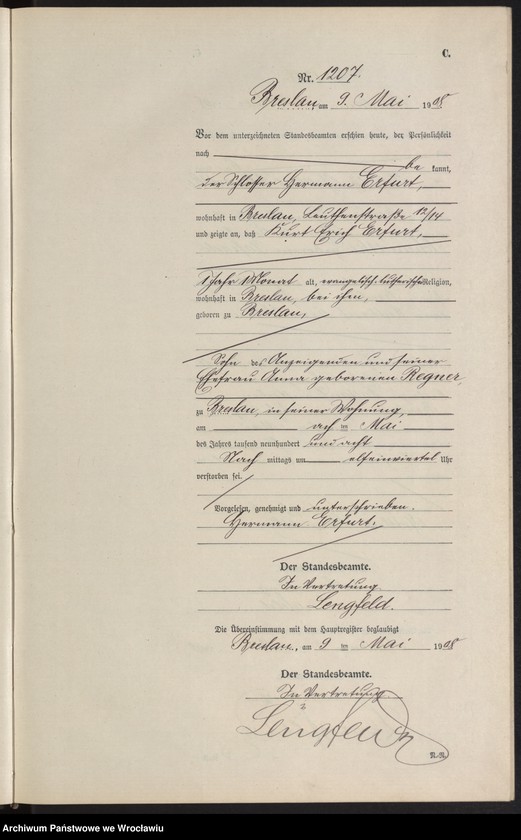 C.
Nr. 1207.
Breslau am 9. Mai 1908
Vor dem unterzeichneten Standesbeamten erschien heute, der Persönlichkeit
nach be kannt,
der Schlosser Hermann Erfurt,
wohnhaft in Breslau, Leuthenstraße 12/14
und zeigte an, daß Kurt Erich Erfurt,
1 Jahr 1 Monat alt, evangelisch-lutherischer Religion,
wohnhaft in Breslau, bei ihm,
geboren zu Breslau,
Sohn des Anzeigenden und seiner
Ehefrau Anna geborenen Regner,
zu Breslau, in seiner Wohnung,
am acht ten Mai
des Jahres tausend neunhundert und acht
Nach mittags um elfeinviertel Uhr
verstorben sei.
Vorgelesen, genehmigt und unterschrieben.
Hermann Erfurt.
Der Standesbeamte.
In Vertretung
Lengfeld.
Die Übereinstimmung mit dem Hauptregister beglaubigt
Breslau, am 9 ten Mai 1908
Der Standesbeamte.
In Vertretung.
Lengfeld
Archiwum Państwowe we Wrocławiu